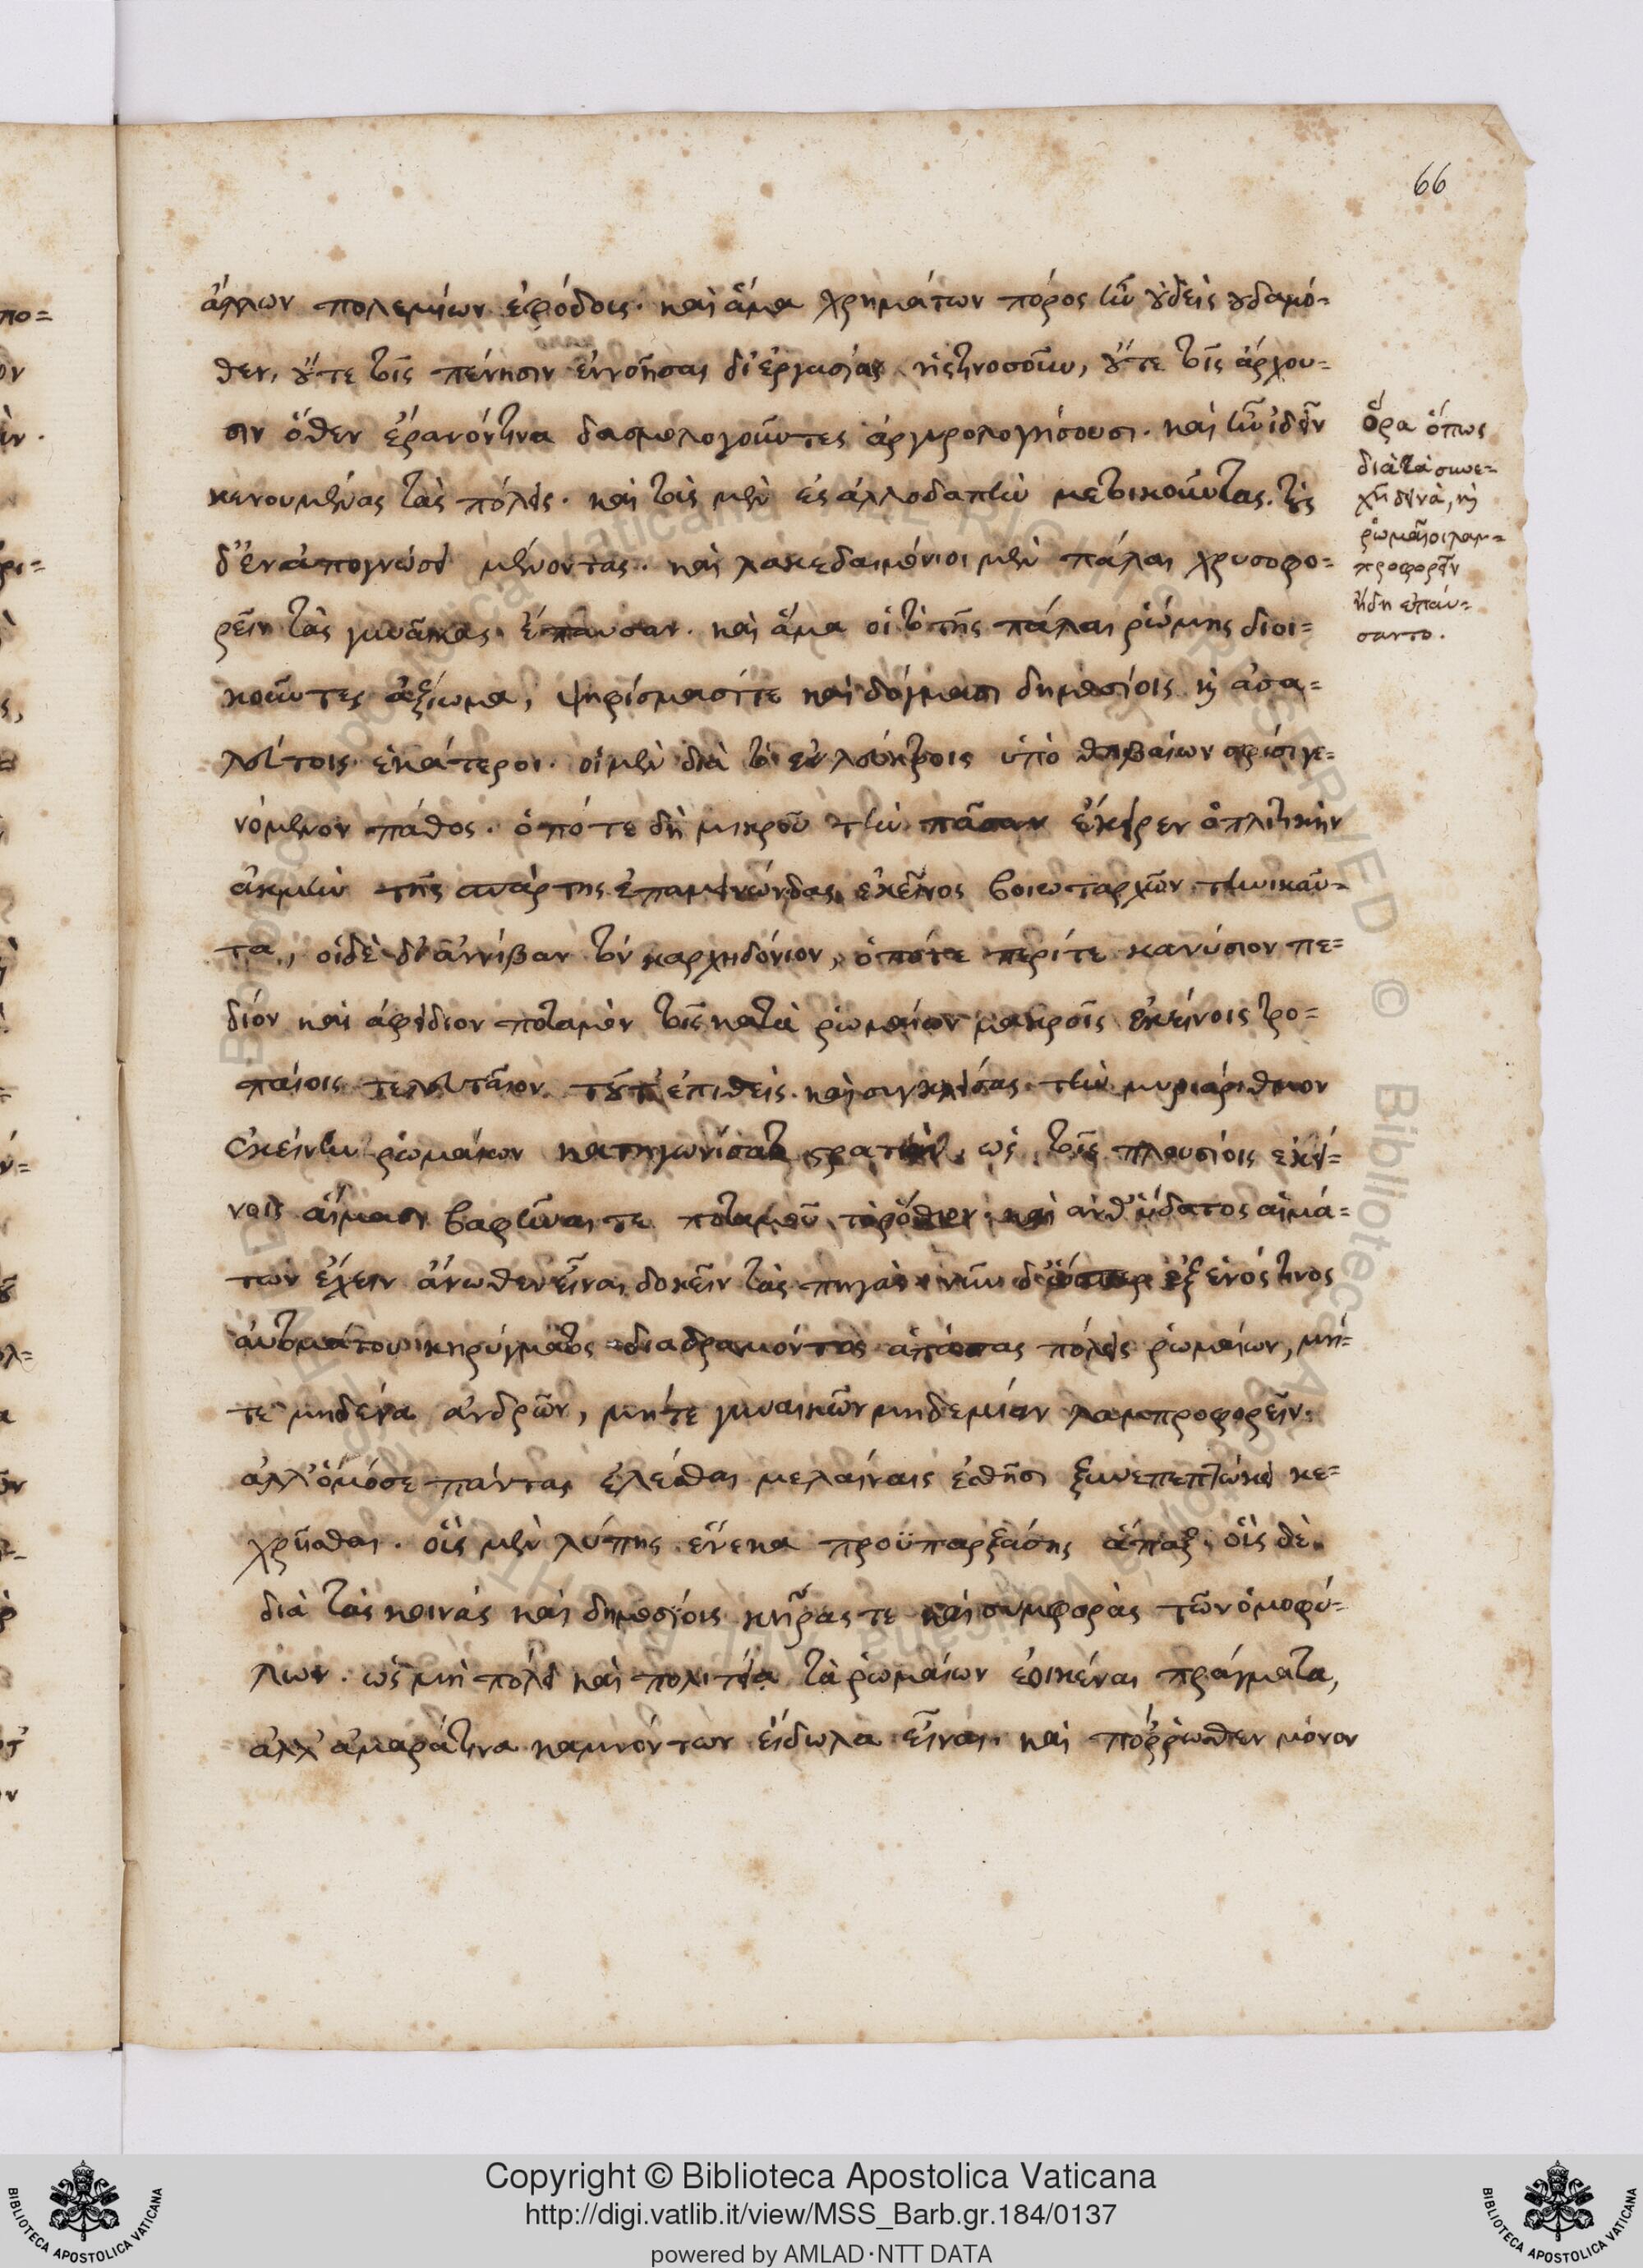 66
ἄλλων πολεμίων ἐφόδοις. καὶ ἅμα χρημάτων πόρος ἦν οὐδεὶς οὐδαμό=
θεν, οὔτε τοῖς πένησιν ἐννοῆσαι δι' ἐργασίας ἡστινοσοῦν, οὔτε τοῖς ἄρχου=
σιν ὅθεν ἔρανόν τινα δασμολογοῦντες ἀργυρολογήσουσι. καὶ ἦν ἰδεῖν
κενουμένας τὰς πόλεις. καὶ τοὺς μὲν ἐς ἀλλοδαπὴν μετοικοῦντας. τοὺς
δ' ἐν ἀπογνώσει μένοντας. καὶ λακεδαιμόνιοι μὲν πάλαι χρυσοφο=
ρεῖν τὰς γυναῖκας ἔπαυσαν. καὶ ἅμα οἱ τὸ τῆς πάλαι ῥώμης διοι=
κοῦντες ἀξίωμα, ψηφίσμασί τε καὶ δόγμασι δημοσίοις καὶ ἀσα=
λεύτοις ἑκάτεροι. οἱ μὲν διὰ τὸ ἐν λεύκτροις ὑπὸ θηβαίων σφίσι γε=
νόμενον πάθος. ὁπότε δὴ μικροῦ τὴν πᾶσαν ἔκειρεν ὁπλιτικὴν
ἀκμὴν τῆς σπάρτης ἐπαμεινώνδας ἐκεῖνος βοιωταρχῶν τηνικαῦ=
τα, οἱ δὲ δι' ἀννίβαν τὸν καρχηδόνιον, ὁπότε περί τε κανύσιον πε=
δίον καὶ ἀφίδιον ποταμὸν τοῖς κατὰ ῥωμαίων μακροῖς ἐκείνοις τρο=
παίοις τελευταῖον τουτὶ ἐπιθεὶς καὶ συγκλείσας τὴν μυριάριθμον
ἐκείνην ῥωμαίων κατηγωνίσατο στρατιάν, ὡς τοῖς πλουσίοις ἐκεί=
νοις αἵμασι βαφῆναι τε ποταμοῦ τὸ ῥόθιον. καὶ ἀνθ' ὕδατος αἱμά=
των ἔχειν ἄνωθεν εἶναι δοκεῖν τὰς πηγάς. νῦν δ' ὥσπερ ἐξ ἑνός τινος
αὐτομάτου κηρύγματος διαδραμόντος ἁπάσας πόλεις ῥωμαίων, μή=
τε μηδένα ἀνδρῶν, μήτε γυναικῶν μηδεμίαν λαμπροφορεῖν.
ἀλλ' ὁμόσε πάντας ἑλέσθαι μελαίναις ἐσθῆσι ξυνεπεπτώκει κε=
χρῆσθαι. οἷς μὲν λύπης ἕνεκα προϋπαρξάσης ἅπαξ, οἷς δὲ
διὰ τὰς κοινὰς καὶ δημοσίοις κῆράς τε καὶ συμφορὰς τῶν ὁμοφύ=
λων. ὡς μὴ πόλει καὶ πολιτείᾳ τὰ ῥωμαίων ἐοικέναι πράγματα,
ἀλλ' ἀμαρά τινα καμνόντων εἴδωλα εἶναι. καὶ πόῤῥωθεν μόνον
ὅρα ὅπως
διὰ τὰ συνε=
χῆ δεινὰ, καὶ
ῥωμαῖοι λαμ=
προφορεῖν
ἤδη ἐπαύ=
σαντο.
Copyright © Biblioteca Apostolica Vaticana
http://digi.vatlib.it/view/MSS_Barb.gr.184/0137
powered by AMLAD·NTT DATA
BIBLIOTECA APOSTOLICA VATICANA
BIBLIOTECA APOSTOLICA VATICANA